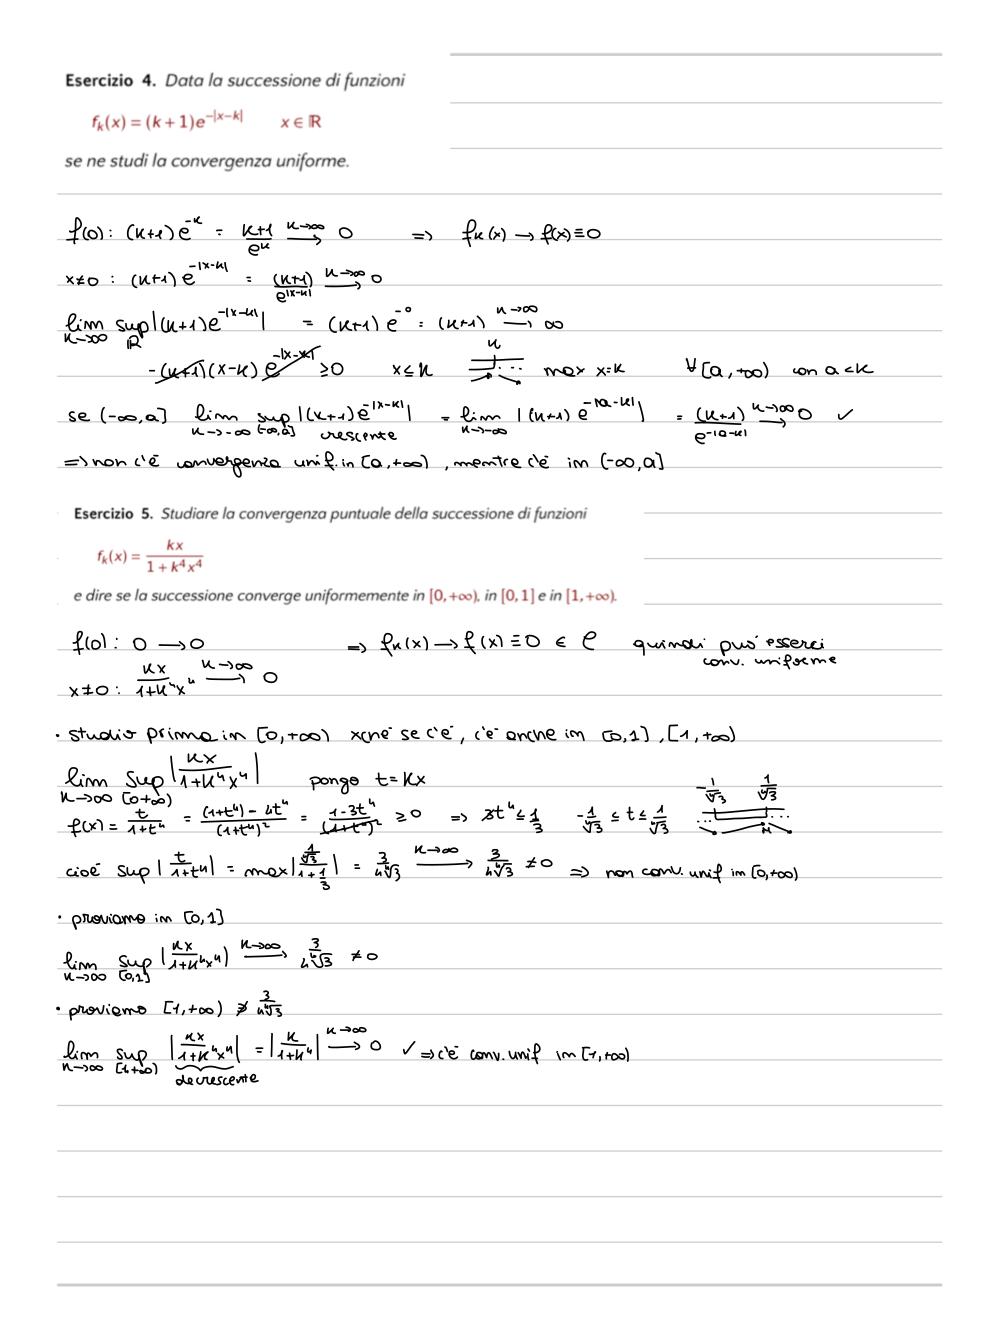 Esercizio 4. Data la successione di funzioni
f_k(x) = (k+1)e^{-|x-k|}   x ∈ ℝ
se ne studi la convergenza uniforme.
f(0): (k+1)e^{-k} = \frac{k+1}{e^k} \xrightarrow{k→∞} 0   ⇒   f_k(x) → f(x) ≡ 0
x≠0 : (k+1)e^{-|x-k|} = \frac{(k+1)}{e^{|x-k|}} \xrightarrow{k→∞} 0
lim_{k→∞} sup_ℝ |(k+1)e^{-|x-k|}| = (k+1)e^{-0} = (k+1) \xrightarrow{k→∞} ∞
-(k+1)(x-k)e^{-|x-k|} ≥0   x≤k   k   max x=k   ∀ [a,+∞) con a<k
se (-∞,a] lim_{k→-∞} sup_{(-∞,a]} |(k+1)e^{-|x-k|}| = lim_{k→-∞} |(k+1)e^{-|a-k|}| = \frac{(k+1)}{e^{-|a-k|}} \xrightarrow{k→∞} 0 ✓
crescente
⇒ non c'è convergenza unif. in [a,+∞), mentre c'è in (-∞,a]
Esercizio 5. Studiare la convergenza puntuale della successione di funzioni
f_k(x) = \frac{kx}{1+k^4x^4}
e dire se la successione converge uniformemente in [0,+∞), in [0,1] e in [1,+∞).
f(0): 0 → 0   ⇒ f_k(x) → f(x) ≡ 0 ∈ C   quindi può esserci
conv. uniforme
x≠0 : \frac{kx}{1+k^4x^4} \xrightarrow{k→∞} 0
· studio prima in [0,+∞) xché se c'è, c'è anche in [0,1], [1,+∞)
lim_{k→∞} sup_{[0+∞)} |\frac{kx}{1+k^4x^4}|   pongo t=kx   -\frac{1}{\sqrt[4]{3}}   \frac{1}{\sqrt[4]{3}}
f(x) = \frac{t}{1+t^4} = \frac{(1+t^4)-4t^4}{(1+t^4)^2} = \frac{1-3t^4}{(1+t^4)^2} ≥0 ⇒ 3t^4 ≤ \frac{1}{3}   -\frac{1}{\sqrt[4]{3}} ≤ t ≤ \frac{1}{\sqrt[4]{3}}   M
cioè sup |\frac{t}{1+t^4}| = max |\frac{\frac{1}{\sqrt[4]{3}}}{1+\frac{1}{3}}| = \frac{3}{4\sqrt[4]{3}} \xrightarrow{k→∞} \frac{3}{4\sqrt[4]{3}} ≠0 ⇒ non conv. unif in [0,+∞)
· proviamo in [0,1]
lim_{k→∞} sup_{[0,1]} |\frac{kx}{1+k^4x^4}| \xrightarrow{k→∞} \frac{3}{4\sqrt[4]{3}} ≠0
· proviamo [1,+∞) ∌ \frac{3}{4\sqrt[4]{3}}
lim_{k→∞} sup_{[1+∞)} |\frac{kx}{1+k^4x^4}| = |\frac{k}{1+k^4}| \xrightarrow{k→∞} 0 ✓ ⇒ c'è conv. unif in [1,+∞)
decrescente